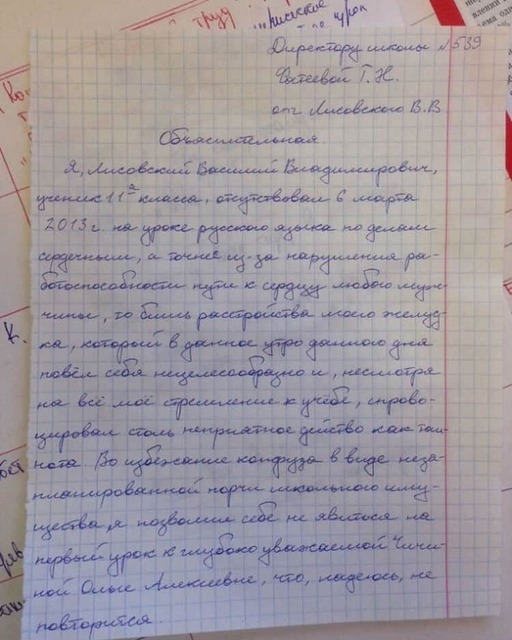 труд
урок
Директору школы №539
Фатеевой Г.Н.
от Лисовского В.В
Объяснительная.
Я, Лисовский Василий Владимирович,
ученик 11а класса, отсутствовал 6 марта
2013г. на уроке русского языка по делам
сердечным, а точнее из-за нарушения ра-
ботоспособности пути к сердцу любого муж-
чины, то бишь расстройства моего желуд-
ка, который в данное утро данного дня
повёл себя нецелесообразно и, несмотря
на всё моё стремление к учёбе, спрово-
цировал столь неприятное действо как тош-
нота. Во избежание конфуза в виде неза-
планированной порчи школьного иму-
щества, я позволил себе не явиться на
первый урок к глубоко уважаемой Чичи-
ной Ольге Алексеевне, что, надеюсь, не
повторится.
К.